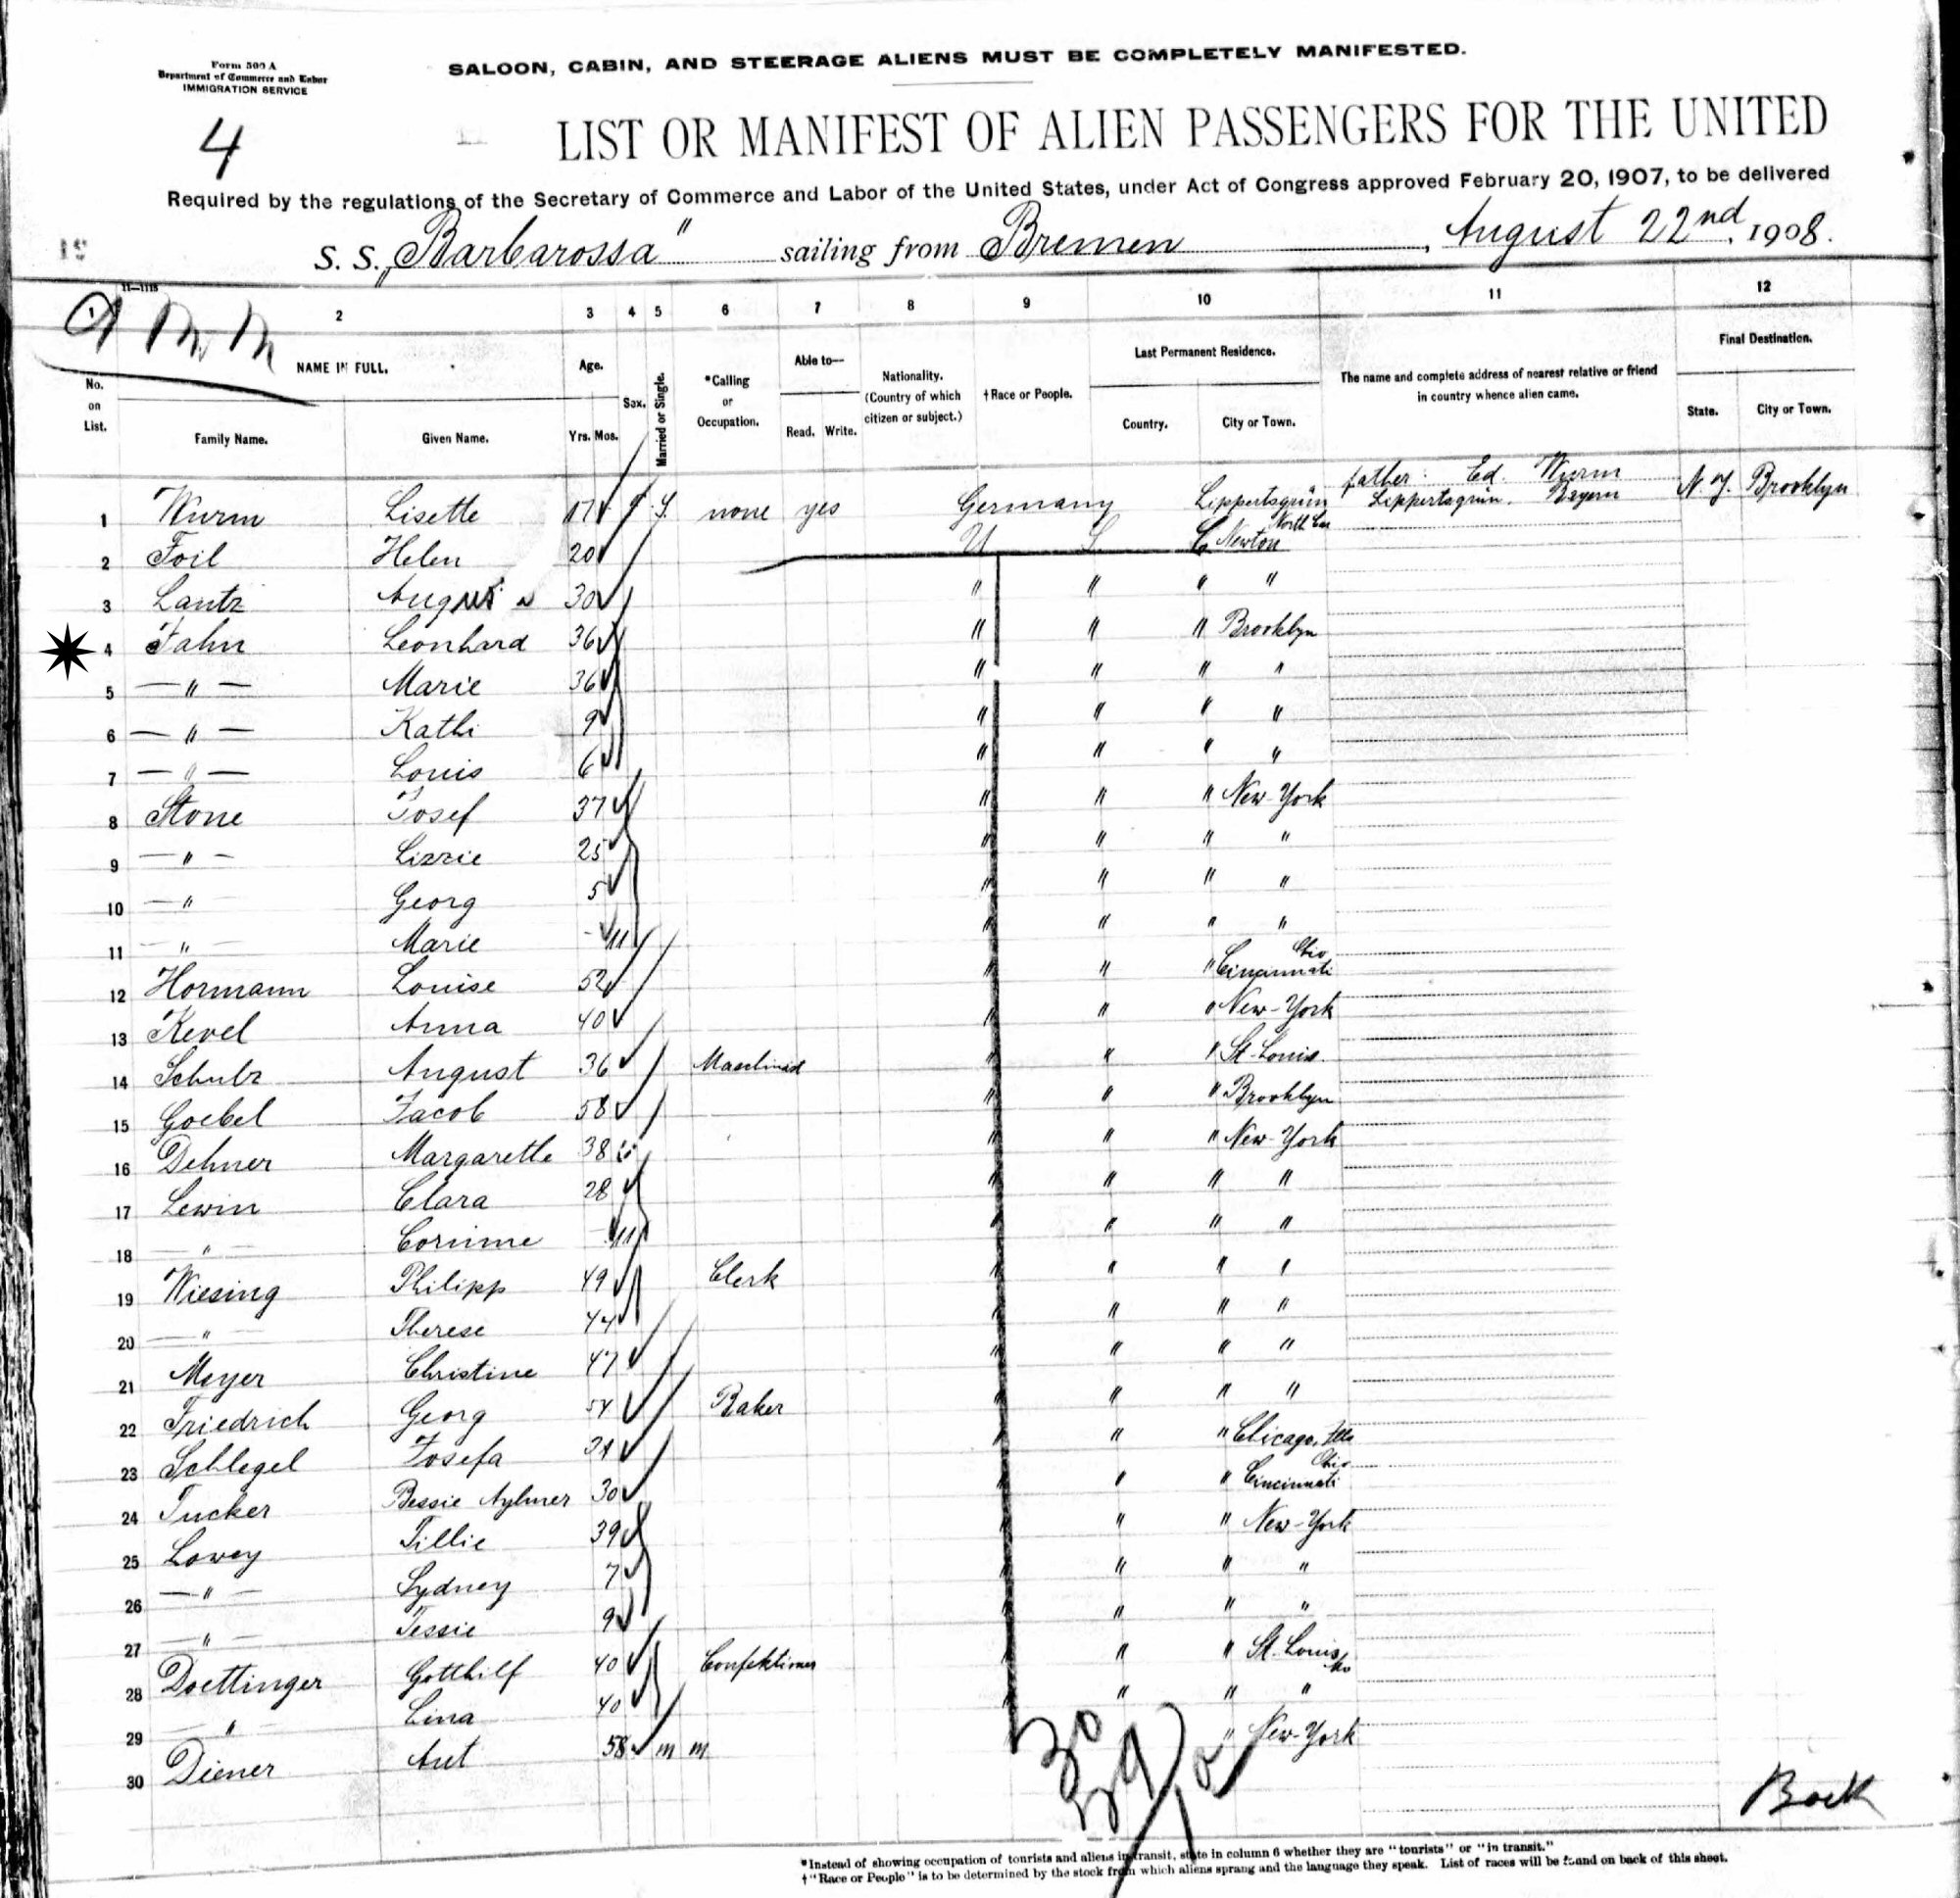 Form 500 A
Department of Commerce and Labor
IMMIGRATION SERVICE
SALOON, CABIN, AND STEERAGE ALIENS MUST BE COMPLETELY MANIFESTED.
4
LIST OR MANIFEST OF ALIEN PASSENGERS FOR THE UNITED
Required by the regulations of the Secretary of Commerce and Labor of the United States, under Act of Congress approved February 20, 1907, to be delivered
S. S. „Barbarossa" sailing from Bremen, August 22nd, 1908.
1 2 3 4 5 6 7 8 9 10 11 12
No. on List. NAME IN FULL. Family Name. Given Name. Age. Yrs. Mos. Sex. Married or Single. *Calling or Occupation. Able to— Read. Write. Nationality. (Country of which citizen or subject.) †Race or People. Last Permanent Residence. Country. City or Town. The name and complete address of nearest relative or friend in country whence alien came. Final Destination. State. City or Town.
1 Wurm Lisette 17 f S. none yes Germany Lippertsgrün father: Ed. Wurm Lippertsgrün, Bayern N.Y. Brooklyn
2 Foil Helen 20 U S. Newton
3 Lantz August 30 " " " "
4 Jahn Leonhard 36 " " " Brooklyn
5 — " — Marie 36 " " " "
6 — " — Kathi 9 " " " "
7 — " — Louis 6 " " " "
8 Stone Josef 37 " " " New-York
9 — " — Lizzie 25 " " " "
10 — " Georg 5 " " " "
11 — " — Marie - 11 " " " "
12 Hormann Louise 52 " " " Cincinnati Ohio
13 Kevel Anna 40 " " New-York
14 Schulz August 36 Maschinist " " " St. Louis.
15 Goebel Jacob 58 " " " Brooklyn
16 Dehner Margarethe 38 " " " New-York
17 Lewin Clara 28 " " " "
18 — " — Corinne - 11 " " " "
19 Wiesing Philipp 49 Clerk " " " "
20 — " — Therese 44 " " " "
21 Meyer Christine 47 " " " "
22 Friedrich Georg 54 Baker " " " "
23 Schlegel Josefa 31 " " " Chicago, Ills
24 Tucker Bessie Aylmer 30 " " " Cincinnati Ohio
25 Lowey Tillie 39 " " " New-York
26 — " — Sydney 7 " " " "
27 — " — Jessie 9 " " " "
28 Doettinger Gotthilf 40 " " " St. Louis Mo
29 — " Lina 40 " " " "
30 Diener Ant 58 m m " New-York
30
Back
*Instead of showing occupation of tourists and aliens in transit, state in column 6 whether they are "tourists" or "in transit."
†"Race or People" is to be determined by the stock from which aliens sprang and the language they speak. List of races will be found on back of this sheet.